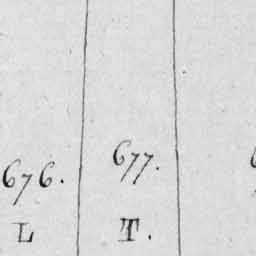 676.
L
677.
T.